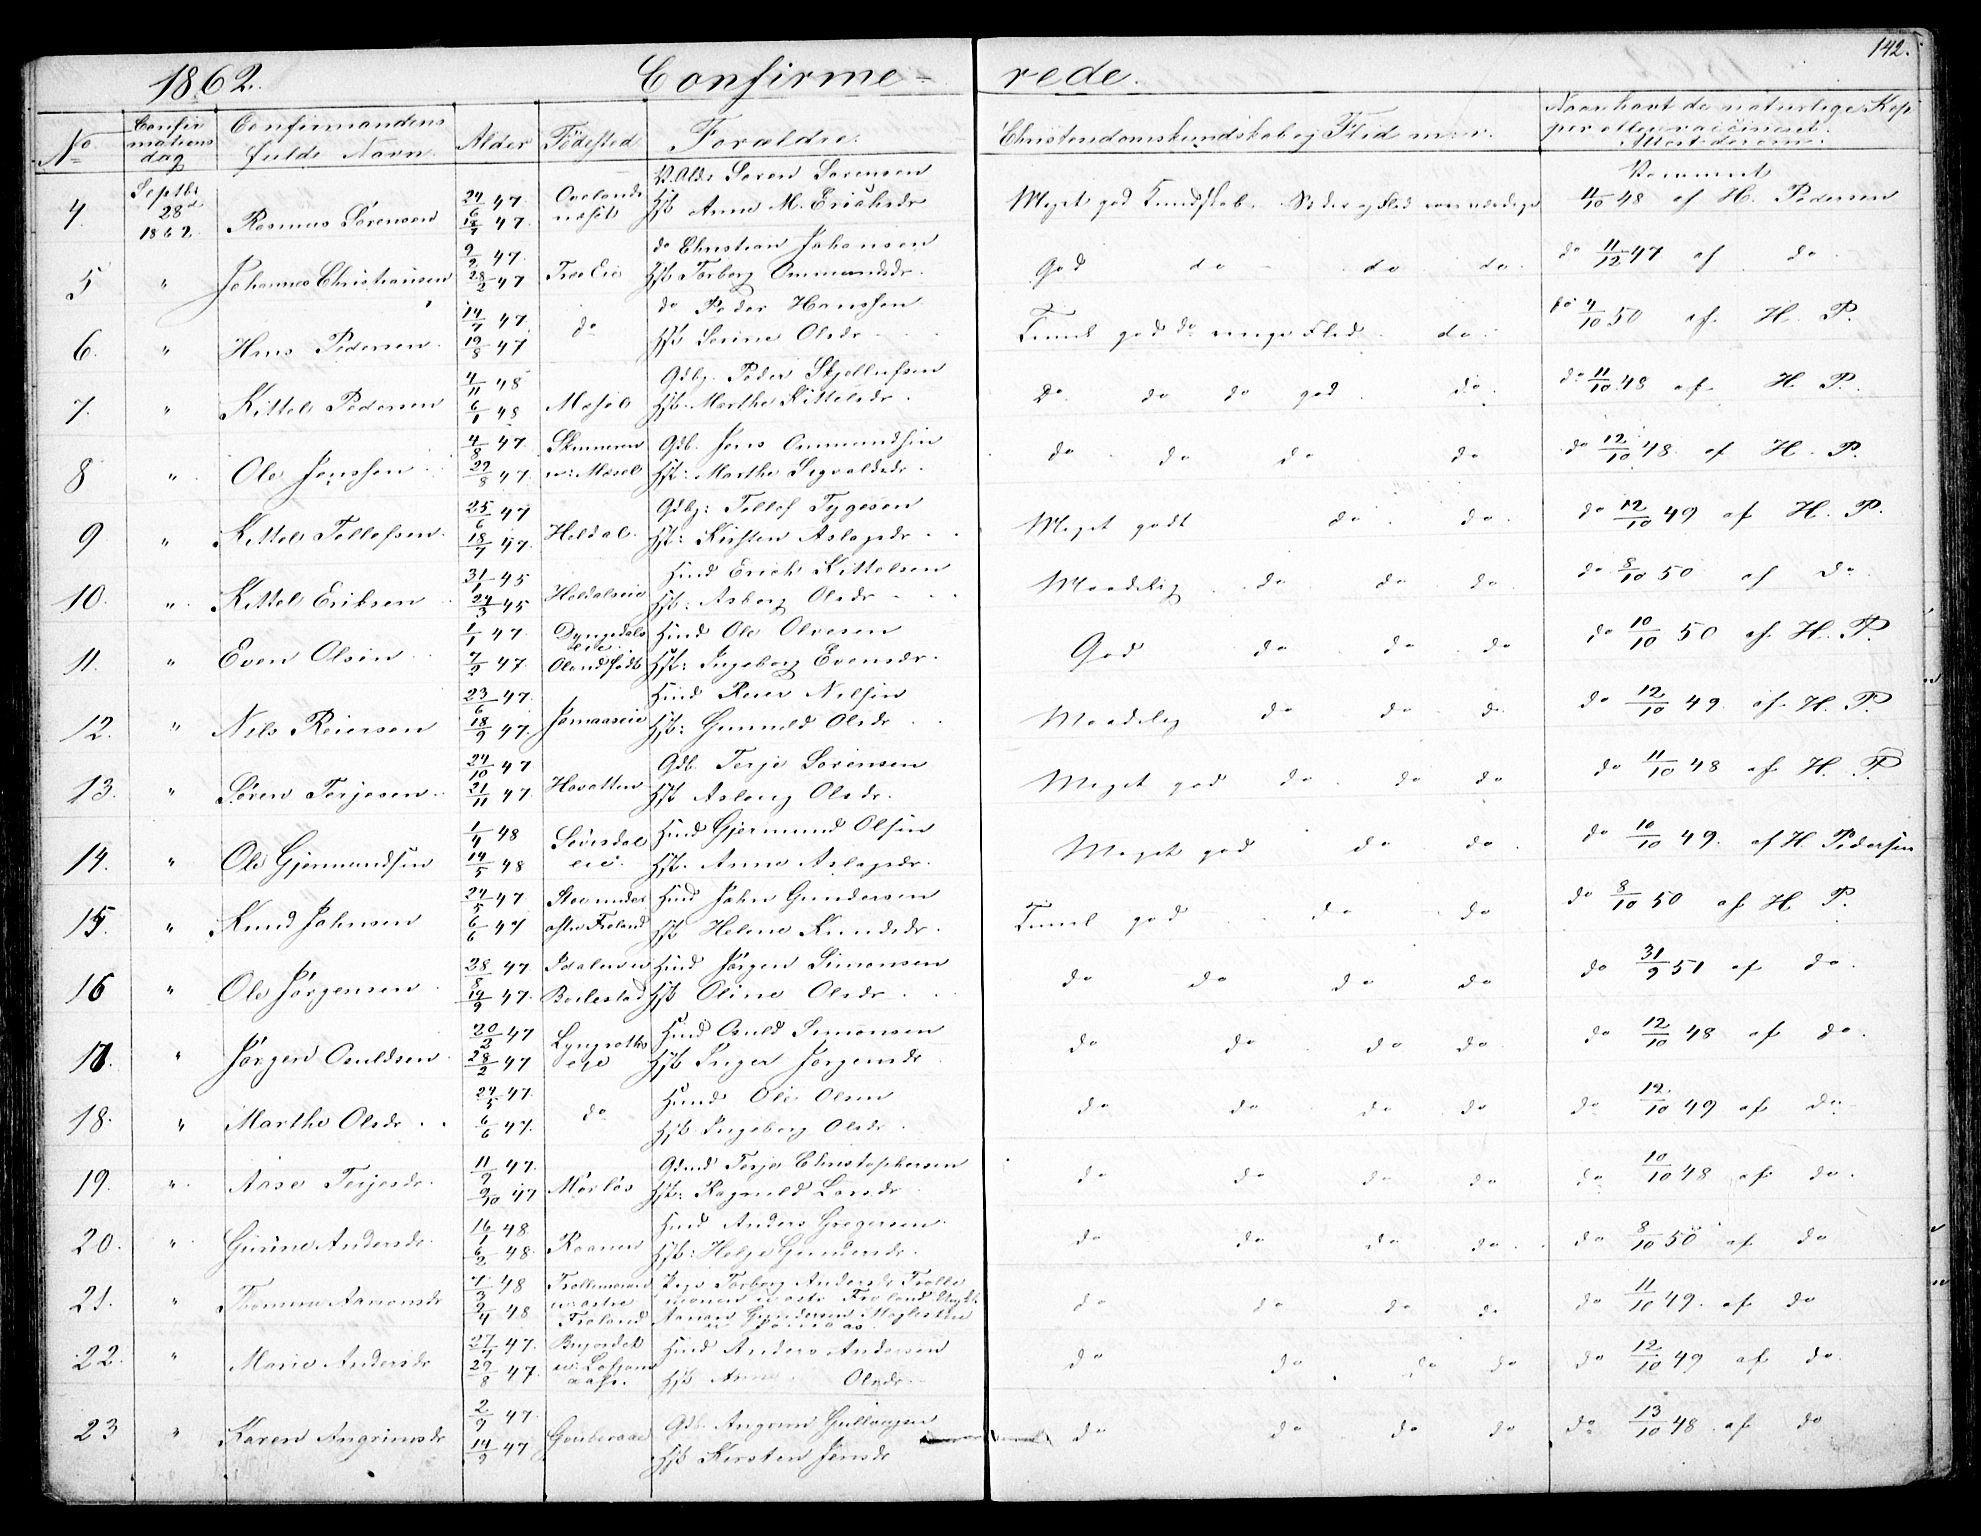 142.
1862. Confirme- rede.
No Confirmations dag Confirmandens fulde Navn Alder Fødested Forældre Christendomskundskab og Flid m: v. Naar havt de naturlige Kopper eller vaccineret. Attest derom.
4. Septbr 28d 1862. Rasmus Sørensen 24/6 47 Soren Sorensen Hst Anne M. Erichsdr Meget god Kundskab. 11/10 48 af H. Pedersen
5 " Johannes Christiansen 2/2 47. 28/2 47 do Christian Johansen Hst Torborg Ommundsdr. God do do do do 11/12 47 af do
6. " Hans Pedersen 14/7 47 19/8 47 do do Peder Hanssen Hst Serine Olsdr do do 4/10 50 af H. P.
7. " Kittel Pedersen 4/11 48 6/1 48 Mesel Gdbr. Peder Skjellufsen Hst. Marthe Kittelsdr. Do do do god do do 11/10 48 af H. P.
8 " Ole Jenssen 4/8 47. 22/8 47 w: Mesel Gdb. Jens Ommundsen Hst: Marthe Sigvaldsdr. do do do do do 12/10 48 af H. P.
9 " Kittel Tellefsen. 25/6 47 18/7 47. Heldal. Gdbr: Tellef Tygesen Hst: Kirsten Aslagsdr Meget godt do do do 12/10 49 af H. P.
10. " Kittel Eriksen 31/1 45 24/3 45 Heldalseie Hmd Erich Kittelsen Hst: Asborg Olsdr Maadelig do do do do 8/10 50 af do
11. " Even Olsen 1/1 47. 7/2 47. Hmd Ole Olvesen Hst: Ingeborg Evensdr. God do do do do 10/10 50 af H. P.
12. " Nils Reiersen 23/6 47. 18/9 47. Jomaaseie Hmd Reier Nilsen Hst: Gunnild Olsdr Maadelig do do do do 12/10 49. af H. P.
13. " Søren Terjesen 24/10 47 21/11 47. Hovatten Gdb. Terje Sorensen Hst Aslaug Olsdr. Meget god do do do do 11/10 48 af H. P
14. " Ole Gjermundsen 1/4 48 14/5 48 Hmd Gjermund Olsen Hst. Anne Aslagsdr. Meget god do do do 10/10 49. af H Pedersen
15. " Knud Johnsen 24/5 47 6/6 47 Hmd John Gundersen Hst Helene Knudsdr. god do do do 8/10 50 af H P.
16 " Ole Jørgensen 28/8 47 19/9 47. Bøilestad Hmd Jørgen Simonsen Hst Oline Olsdr do do do do do 31/9 51 af do.
17. " Jørgen Osuldsen 20/2 47 28/2 47 Lyngroths eie Hmd Osuld Simonsen Hst Inger Jørgensdr do do do do do 12/10 48 af do.
18. " Marthe Olsdr 24/5 47. 6/6 47. do Hmd Ole Olsen Hst. Ingeborg Olsdr do do do do do 12/10 49 af do
19. " Aase Terjesdr. 11/9 47. 9/10 47 Mørløs Gdmd Terje Christophersen Hst: Ragnild Larsdr do do do do do 10/10 48 af do.
20. " Gurine Andersdr 16/1 48 6/2 48. Hmd Anders Gregersen. Hst: Helje Gundersdr. do do do do do 8/10 50 af do
21. " Aanonsdr 7/3 48 2/4 48 østre Froland Pige Torborg Andersdr østr Froland Aanon Gundersen do do do do do 11/10 49. af do
22. " Marie Andersdr 27/7 47. 29/8 47. Hmd Anders Andersen Hst Anne Olsdr do do do do do 12/10 49 af do.
23 " Karen Angrimsdr 2/9 47. 14/9 47 Gdb. Angrim Gullaugsen Hst Kirsten Jensdr do do do do do 13/10 48 af do